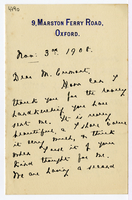 9, MARSTON FERRY ROAD,
OXFORD.
Nov. 3rd 1908.
Dear M.
How can I
thank you for the lovely
handkerchief you have
sent me. It is really
beautiful, & I shall value
it very much, & think
when I use it of your
kind thought for me.
We are having a second